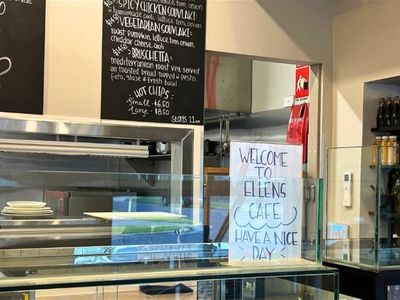 SPICY CHICKEN SOUVLAKI:
homemade aioli, lettuce, tom, onion
VEGETARIAN SOUVLAKI:
roast pumpkin, lettuce, tom, onion,
cheddar cheese, aioli
BRUSCHETTA:
mediterranean roast veg, served
on toasted bread topped w pesto,
feta, glaze & fresh basil
HOT CHIPS
Small: $6.50
Large: $8.50
Starts 11
WELCOME
TO
ELLENS
CAFE
HAVE A NICE
DAY